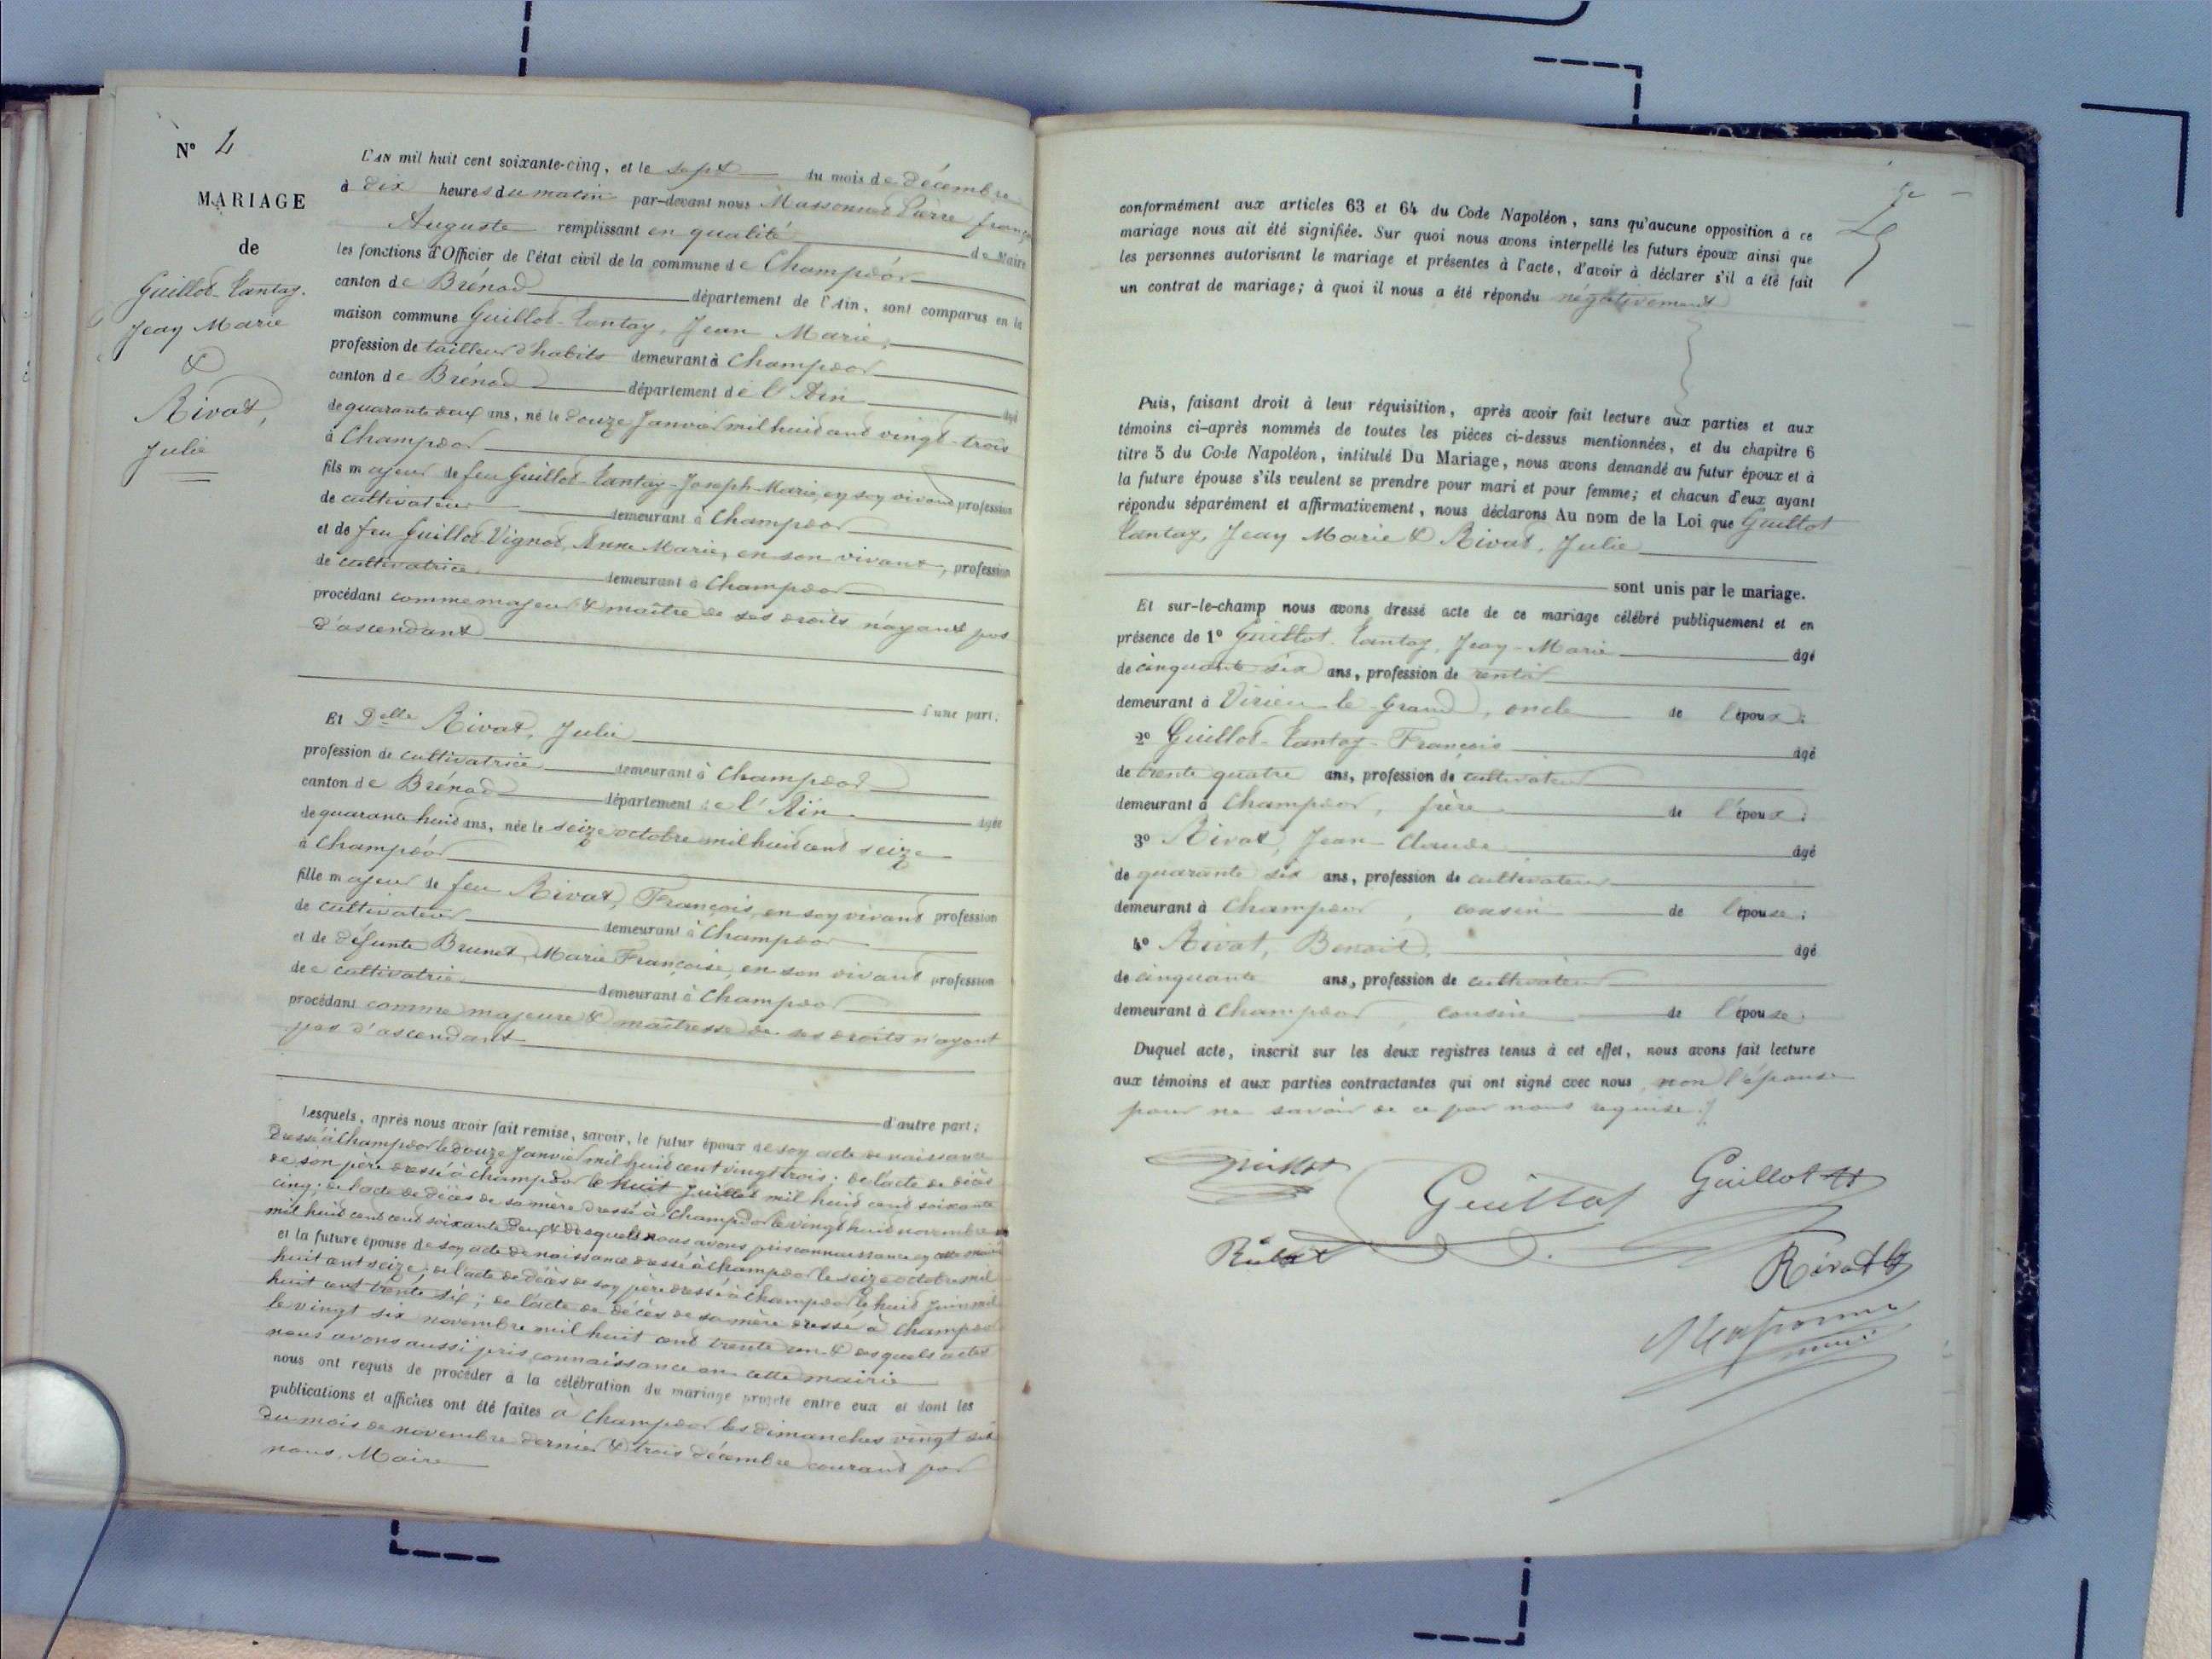 N° 4
MARIAGE
de
Guillot-Tantaz.
Jean Marie
&
Rivat,
Julie
L'AN mil huit cent soixante-cinq, et le sept du mois de décembre
à dix heures du matin par-devant nous Massonnet Pierre
Auguste remplissant en qualité de Maire
les fonctions d'Officier de l'état civil de la commune de Champdor
canton de Brénod département de l'Ain, sont comparus en la
maison commune Guillot-Tantaz, Jean Marie,
profession de tailleur d'habits demeurant à Champdor
canton de Brénod département de l'Ain âgé
de quarante deux ans, né le douze Janvier mil huit cent vingt-trois
à Champdor
fils majeur de feu Guillot-Tantaz-Joseph-Marie, en son vivant profession
de cultivateur demeurant à Champdor
et de feu Guillot-Vignot, Anne Marie, en son vivant, profession
de cultivatrice demeurant à Champdor
procédant comme majeur & maître de ses droits n'ayant pas
d'ascendant
d'une part;
Et Delle Rivat, Julie
profession de cultivatrice demeurant à Champdor
canton de Brénod département de l'Ain âgée
de quarante huit ans, née le seize octobre mil huit cent seize
à Champdor
fille majeur de feu Rivat, François, en son vivant profession
de cultivateur demeurant à Champdor
et de défunte Brunet, Marie Françoise, en son vivant profession
de cultivatrie demeurant à Champdor
procédant comme majeure & maîtresse de ses droits n'ayant
pas d'ascendant
d'autre part;
Lesquels, après nous avoir fait remise, savoir, le futur époux de son acte de naissance
dressé à Champdor le douze Janvier mil huit cent vingt trois; de l'acte de décès
de son père dressé à Champdor le huit Juillet mil huit cent soixante
cinq; de l'acte de décès de sa mère dressé à Champdor le vingt huit novembre
mil huit cent cent soixante deux & desquels nous avons pris connaissance en cette mairie
et la future épouse de son acte de naissance dressé à Champdor le seize octobre mil
huit cent seize; de l'acte de décès de son père dressé à Champdor le huit Juin mil
huit cent trente six; de l'acte de décès de sa mère dressé à Champdor
le vingt six novembre mil huit cent trente un & desquels actes
nous avons aussi pris connaissance en cette mairie
nous ont requis de procéder à la célébration du mariage projeté entre eux et dont les
publications et affiches ont été faites à Champdor les dimanches vingt six
du mois de novembre dernier & trois décembre courant par
nous, Maire
conformément aux articles 63 et 64 du Code Napoléon, sans qu'aucune opposition à ce
mariage nous ait été signifiée. Sur quoi nous avons interpellé les futurs époux ainsi que
les personnes autorisant le mariage et présentes à l'acte, d'avoir à déclarer s'il a été fait
un contrat de mariage; à quoi il nous a été répondu négativement
Puis, faisant droit à leur réquisition, après avoir fait lecture aux parties et aux
témoins ci-après nommés de toutes les pièces ci-dessus mentionnées, et du chapitre 6
titre 5 du Code Napoléon, intitulé Du Mariage, nous avons demandé au futur époux et à
la future épouse s'ils veulent se prendre pour mari et pour femme; et chacun d'eux ayant
répondu séparément et affirmativement, nous déclarons Au nom de la Loi que Guillot
Tantaz, Jean Marie & Rivat, Julie
sont unis par le mariage.
Et sur-le-champ nous avons dressé acte de ce mariage célébré publiquement et en
présence de 1° Guillot-Tantaz, Jean-Marie âgé
de cinquante six ans, profession de rentier
demeurant à Virieu-le-Grand, oncle de l'époux;
2° Guillot-Tantaz-François âgé
de trente quatre ans, profession de cultivateur
demeurant à Champdor, frère de l'époux;
3° Rivat, Jean-Claude âgé
de quarante six ans, profession de cultivateur
demeurant à Champdor, cousin de l'épouse;
4° Rivat, Benoit, âgé
de cinquante ans, profession de cultivateur
demeurant à Champdor, cousin de l'épouse.
Duquel acte, inscrit sur les deux registres tenus à cet effet, nous avons fait lecture
aux témoins et aux parties contractantes qui ont signé avec nous, non l'épouse
pour ne savoir de ce par nous requise.
Guillot Guillot Guillot
Rivat Rivat